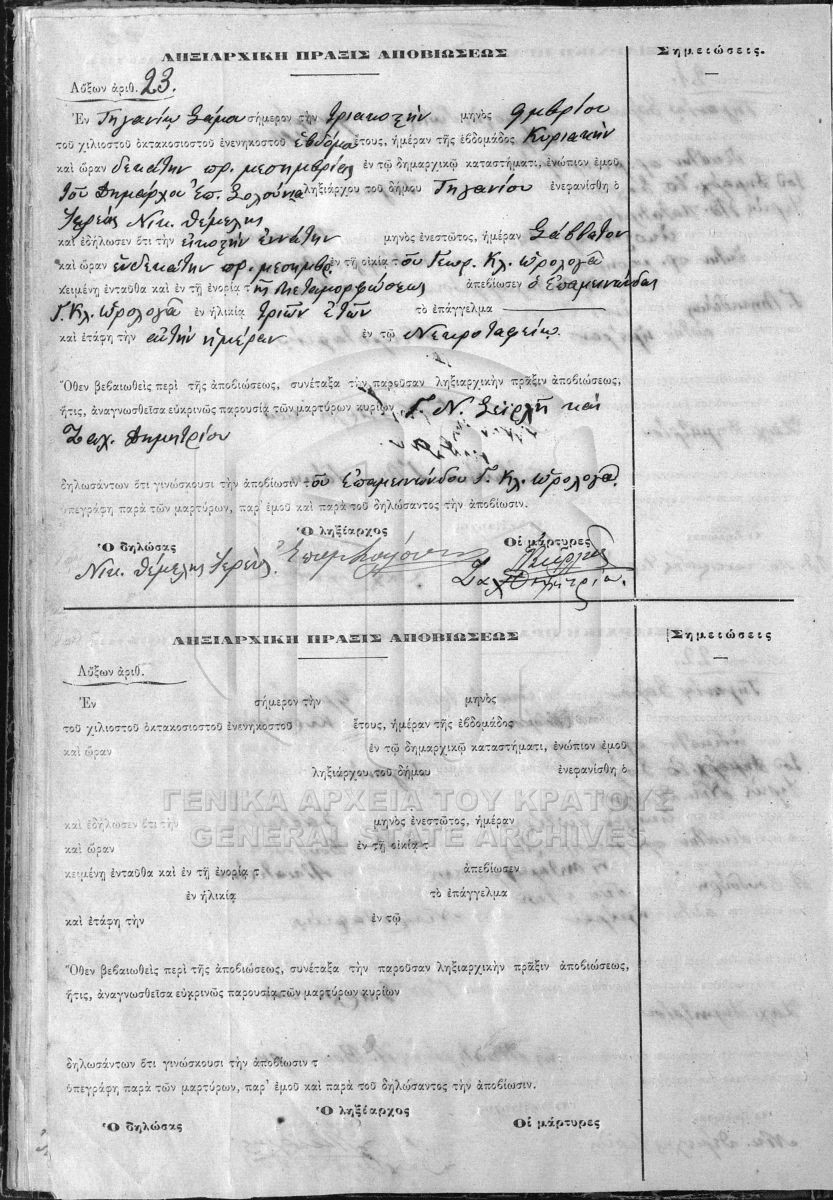 ΛΗΞΙΑΡΧΙΚΗ ΠΡΑΞΙΣ ΑΠΟΒΙΩΣΕΩΣ
Σημειώσεις.
Αὔξων ἀριθ. 23.
Ἐν Τηγανίῳ Σάμου σήμερον τὴν τριακοστὴν μηνὸς 9μβρίου
τοῦ χιλιοστοῦ ὀκτακοσιοστοῦ ἐνενηκοστοῦ ἑβδόμου ἔτους, ἡμέραν τῆς ἑβδομάδος Κυριακὴν
καὶ ὥραν δεκάτην πρ. μεσημβρίας ἐν τῷ δημαρχικῷ καταστήματι, ἐνώπιον ἐμοῦ
τοῦ Δημάρχου Ἐπ. ληξιάρχου τοῦ δήμου Τηγανίου ἐνεφανίσθη ὁ
Ἱερεὺς Νικ. Θέμελης
καὶ ἐδήλωσεν ὅτι τὴν εἰκοστὴν ἐννάτην μηνὸς ἐνεστῶτος, ἡμέραν Σάββατον
καὶ ὥραν ἑνδεκάτην πρ. μεσημβρ. ἐν τῇ οἰκίᾳ τοῦ Γεωρ. Κλ. Ὡρολογᾶ
κειμένῃ ἐνταῦθα καὶ ἐν τῇ ἐνορίᾳ τῆς Μεταμορφώσεως ἀπεβίωσεν ὁ Ἐπαμεινώνδας
Γ. Κλ. Ὡρολογᾶ ἐν ἡλικίᾳ τριῶν ἐτῶν τὸ ἐπάγγελμα
καὶ ἐτάφη τὴν αὐτὴν ἡμέραν ἐν τῷ Νεκροταφείῳ.
Ὅθεν βεβαιωθεὶς περὶ τῆς ἀποβιώσεως, συνέταξα τὴν παροῦσαν ληξιαρχικὴν πρᾶξιν ἀποβιώσεως,
ἥτις, ἀναγνωσθεῖσα εὐκρινῶς παρουσίᾳ τῶν μαρτύρων κυρίων Γ. Ν. καὶ
Ζαχ. Δημητρίου
δηλωσάντων ὅτι γινώσκουσι τὴν ἀποβίωσιν τοῦ Ἐπαμεινώνδου Γ. Κλ. Ὡρολογᾶ.
ὑπεγράφη παρὰ τῶν μαρτύρων, παρ' ἐμοῦ καὶ παρὰ τοῦ δηλώσαντος τὴν ἀποβίωσιν.
Ὁ δηλώσας Ὁ ληξίαρχος Οἱ μάρτυρες
Νικ. Θέμελης Ἱερεύς.
Ζαχ. Δημητρίου.
ΛΗΞΙΑΡΧΙΚΗ ΠΡΑΞΙΣ ΑΠΟΒΙΩΣΕΩΣ
Σημειώσεις
Αὔξων ἀριθ.
Ἐν σήμερον τὴν μηνὸς
τοῦ χιλιοστοῦ ὀκτακοσιοστοῦ ἐνενηκοστοῦ ἔτους, ἡμέραν τῆς ἑβδομάδος
καὶ ὥραν ἐν τῷ δημαρχικῷ καταστήματι, ἐνώπιον ἐμοῦ
ληξιάρχου τοῦ δήμου ἐνεφανίσθη ὁ
ΓΕΝΙΚΑ ΑΡΧΕΙΑ ΤΟΥ ΚΡΑΤΟΥΣ
καὶ ἐδήλωσεν ὅτι τὴν μηνὸς ἐνεστῶτος, ἡμέραν
GENERAL STATE ARCHIVES
καὶ ὥραν ἐν τῇ οἰκίᾳ τ
κειμένῃ ἐνταῦθα καὶ ἐν τῇ ἐνορίᾳ τ ἀπεβίωσεν
ἐν ἡλικίᾳ τὸ ἐπάγγελμα
καὶ ἐτάφη τὴν ἐν τῷ
Ὅθεν βεβαιωθεὶς περὶ τῆς ἀποβιώσεως, συνέταξα τὴν παροῦσαν ληξιαρχικὴν πρᾶξιν ἀποβιώσεως,
ἥτις, ἀναγνωσθεῖσα εὐκρινῶς παρουσίᾳ τῶν μαρτύρων κυρίων
δηλωσάντων ὅτι γινώσκουσι τὴν ἀποβίωσιν τ
ὑπεγράφη παρὰ τῶν μαρτύρων, παρ' ἐμοῦ καὶ παρὰ τοῦ δηλώσαντος τὴν ἀποβίωσιν.
Ὁ δηλώσας Ὁ ληξίαρχος Οἱ μάρτυρες